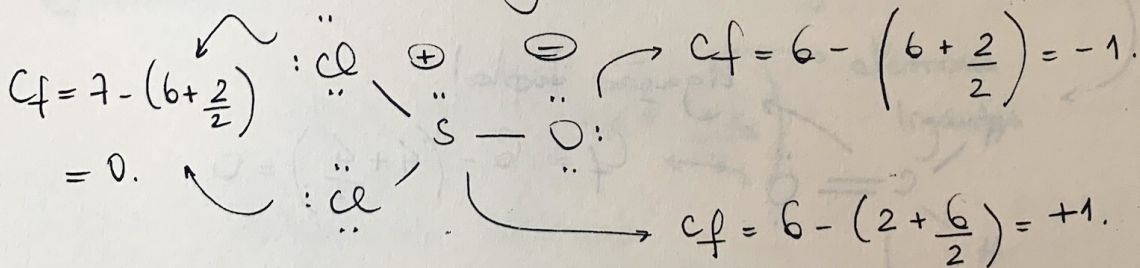 Cf = 7 - (6 + 2/2)
= 0.
:Cl
S — O:
:Cl
+
-
Cf = 6 - (6 + 2/2) = -1.
Cf = 6 - (2 + 6/2) = +1.